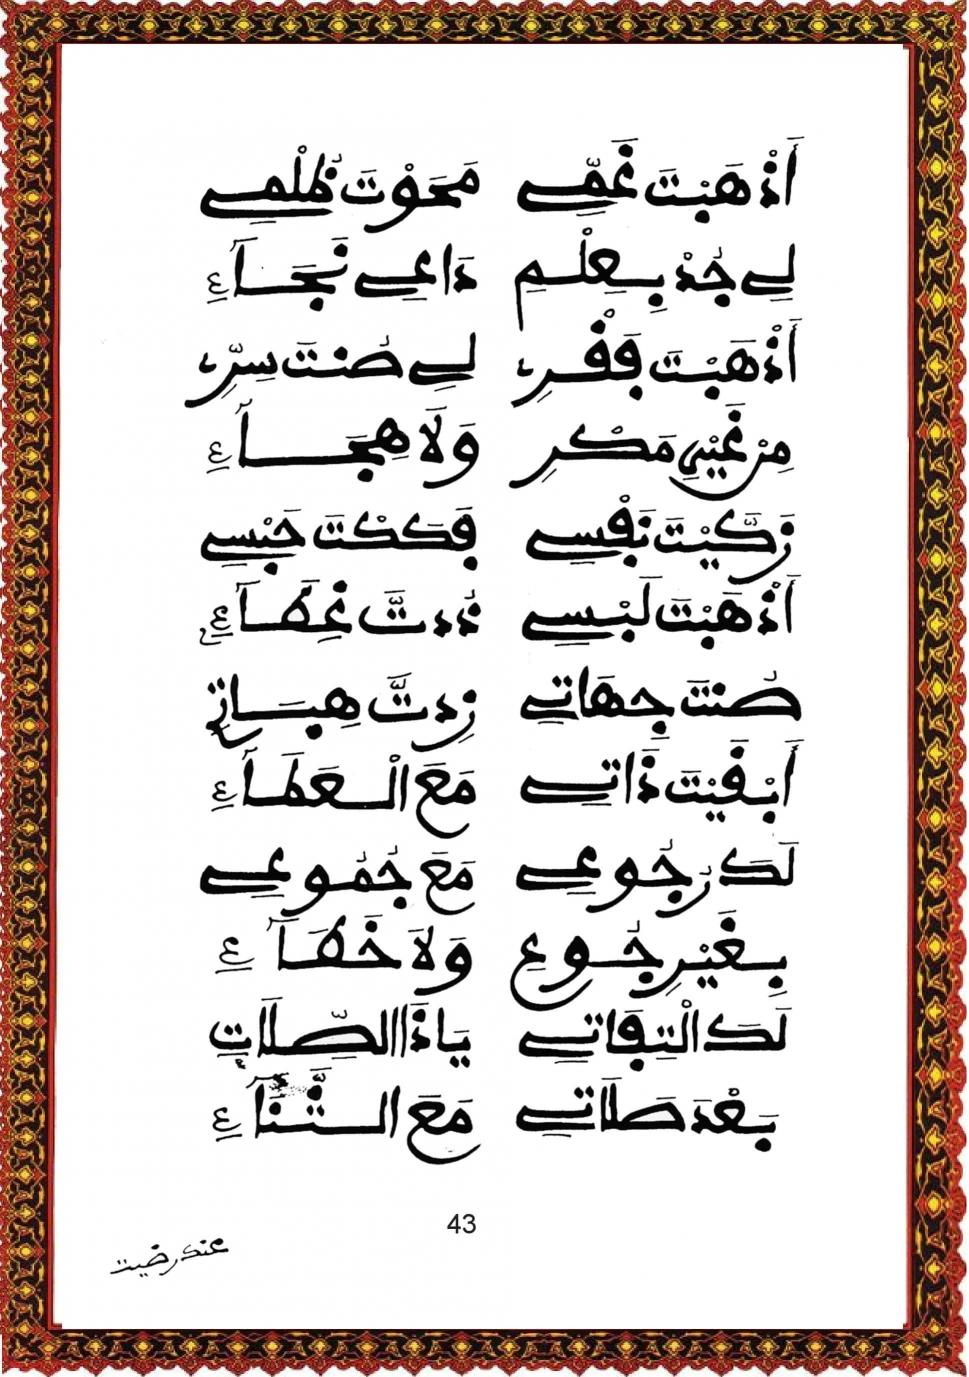 أَذْهَبْتَ غَمِّي مَحَوْتَ ظُلْمِي
لِي جُدْ بِعِلْمِ دَاعِي نَجَآءِ
أَذْهَبْتَ فَقْرِ، لِي صُنْتَ سِرِّ،
مِنْ غَيْرِ مَكْرٍ وَلَا هِجَآءِ
زَكَّيْتَ نَفْسِي فَكَكْتَ حَبْسِي
أَذْهَبْتَ لَبْسِي غِطَآءِ
صُنْتَ جِهَاتِي زِدتَّ هِبَاتِي
أَبْقَيْتَ ذَاتِي مَعَ الْعَطَآءِ
لَكَ رُجُوعِي مَعَ جُمُوعِي
بِغَيْرِ جُوعٍ وَلَا خَفَآءِ
لَكَ الْتِفَاتِي يَا ذَا الصِّلَاتِ
بَعْدَ صَلَاتِي مَعَ الثَّنَآءِ
43
عند رضيت